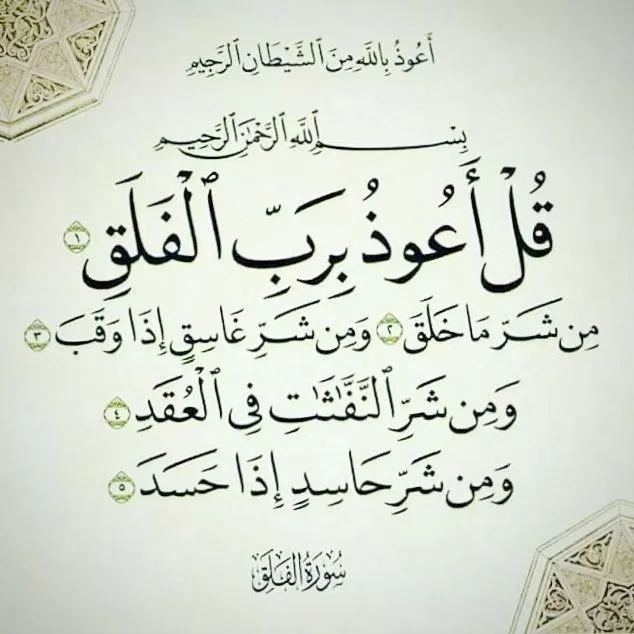 أَعُوذُ بِاللَّهِ مِنَ الشَّيْطَانِ الرَّجِيمِ
بِسْمِ اللَّهِ الرَّحْمَٰنِ الرَّحِيمِ
قُلْ أَعُوذُ بِرَبِّ ٱلْفَلَقِ ١
مِن شَرِّ مَا خَلَقَ ٢ وَمِن شَرِّ غَاسِقٍ إِذَا وَقَبَ ٣
وَمِن شَرِّ ٱلنَّفَّٰثَٰتِ فِى ٱلْعُقَدِ ٤
وَمِن شَرِّ حَاسِدٍ إِذَا حَسَدَ ٥
سُورَةُ الفَلَقِ